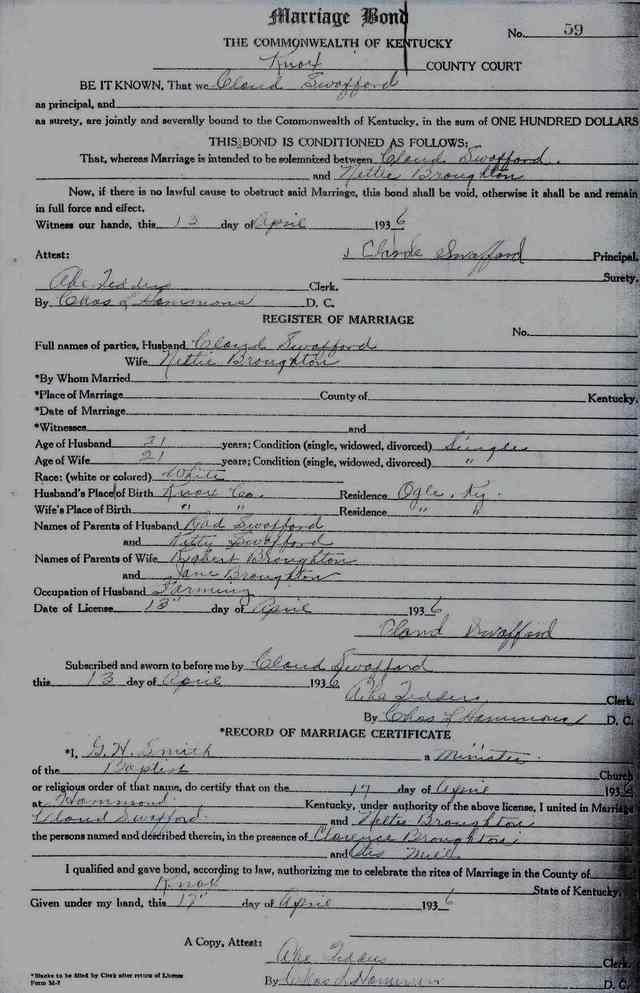 Marriage Bond
No. 59
THE COMMONWEALTH OF KENTUCKY
Knox COUNTY COURT
BE IT KNOWN, That we Cloud Swafford
as principal, and
as surety, are jointly and severally bound to the Commonwealth of Kentucky, in the sum of ONE HUNDRED DOLLARS
THIS BOND IS CONDITIONED AS FOLLOWS:
That, whereas Marriage is intended to be solemnized between Cloud Swafford.
and Nettie Broughton
Now, if there is no lawful cause to obstruct said Marriage, this bond shall be void, otherwise it shall be and remain
in full force and effect.
Witness our hands, this 13 day of April 1936
Attest: Swafford Principal.
Surety.
Clerk.
By Chas L Hammons D. C.
REGISTER OF MARRIAGE
No.
Full names of parties, Husband Cloud Swafford
Wife Nettie Broughton
*By Whom Married
*Place of Marriage County of Kentucky.
*Date of Marriage
*Witnesses and
Age of Husband 21 years; Condition (single, widowed, divorced) Single
Age of Wife 21 years; Condition (single, widowed, divorced) "
Race: (white or colored) White
Husband's Place of Birth Knox Co. Residence Ogle, Ky.
Wife's Place of Birth " " Residence " "
Names of Parents of Husband Swafford
and Kitty Swafford
Names of Parents of Wife Robert Broughton
and Jane Broughton
Occupation of Husband Farming
Date of License 13" day of April 1936
Cloud Swafford
Subscribed and sworn to before me by Cloud Swafford
this 13 day of April 1936
Clerk.
By Chas L Hammons D. C.
*RECORD OF MARRIAGE CERTIFICATE
*I, G. H. Smith a Minister
of the Baptist Church
or religious order of that name, do certify that on the 17 day of April 1936
at Hammond Kentucky, under authority of the above license, I united in Marriage
Cloud Swafford and Nettie Broughton
the persons named and described therein, in the presence of Clarence Broughton
and Mills
I qualified and gave bond, according to law, authorizing me to celebrate the rites of Marriage in the County of
Knox State of Kentucky.
Given under my hand, this 17" day of April 1936
A Copy, Attest:
Clerk.
By Chas L Hammons D. C.
*Blanks to be filled by Clerk after return of License
Form M-7